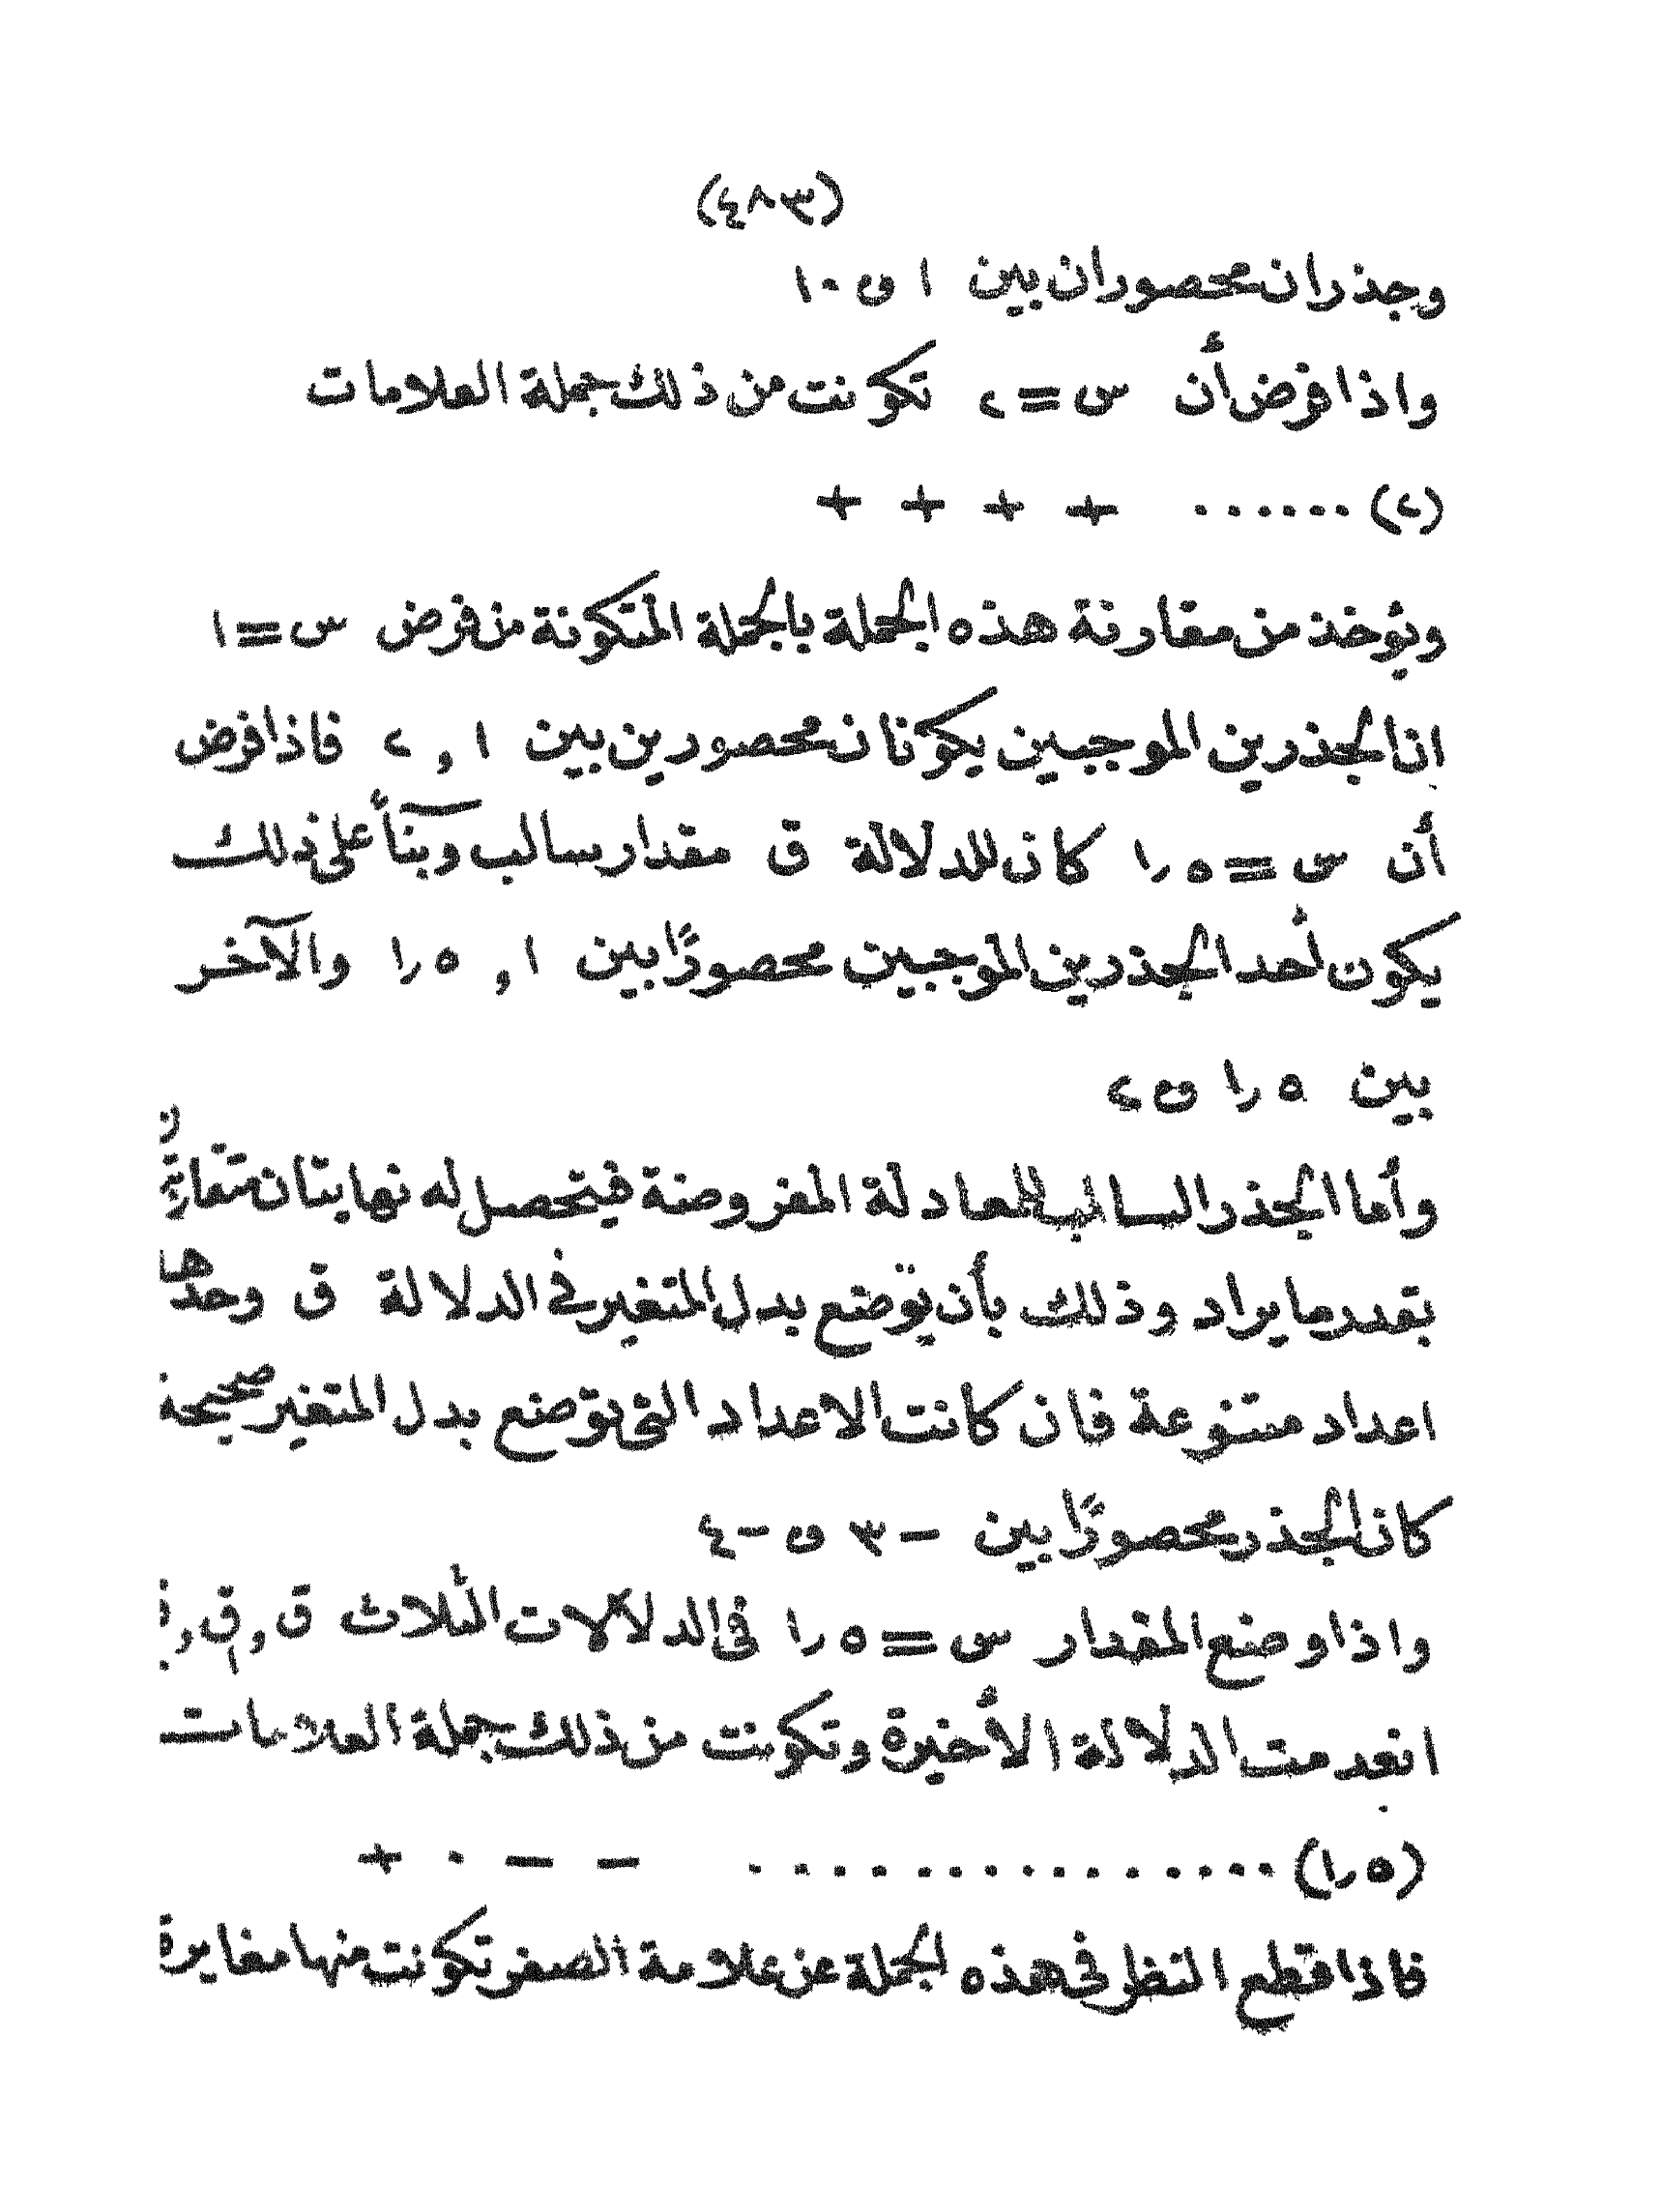 (٤٨٣)
وجذران محصوران بين ١ و ١٠
واذا فرض أن س = ٢ تكونت من ذلك جملة العلامات
(٢) ...... + + + +
ويؤخذ من مقارنة هذه الجملة بالجملة المتكونة من فرض س = ١
ان الجذرين الموجبين يكونان محصورين بين ١ , ٢ فاذا فرض
أن س = ١٫٥ كان للدلالة ق مقدار سالب وبنآأ على ذلك
يكون أحد الجذرين الموجبين محصورًا بين ١ , ١٫٥ والآخر
بين ١٫٥ و ٢
وأما الجذر السالب للمعادلة المفروضة فيتحصل له نهايتان متقاربتان
بقدر ما يراد وذلك بأن يوضع بدل المتغير في الدلالة ق وحدها
اعداد متنوعة فان كانت الاعداد التي توضع بدل المتغير صحيحة
كان الجذر محصورًا بين - ٣ و - ٤
واذا وضع المقدار س = ١٫٥ في الدلالات الثلاث ق , ق١ ,
انعدمت الدلالة الأخيرة وتكونت من ذلك جملة العلامات
(١٫٥) ................ - - ٠ +
فاذا قطع النظر في هذه الجملة عن علامة الصفر تكونت منها مغايرة